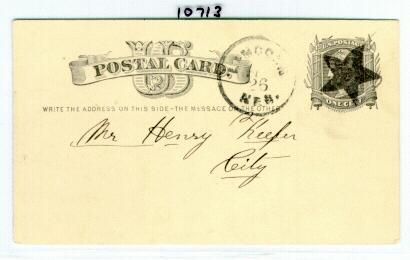 10713
US
POSTAL CARD.
U.S. POSTAGE
ONE CENT
26
NEB.
WRITE THE ADDRESS ON THIS SIDE–THE MESSAGE ON THE OTHER
Mr Henry Keefer
City